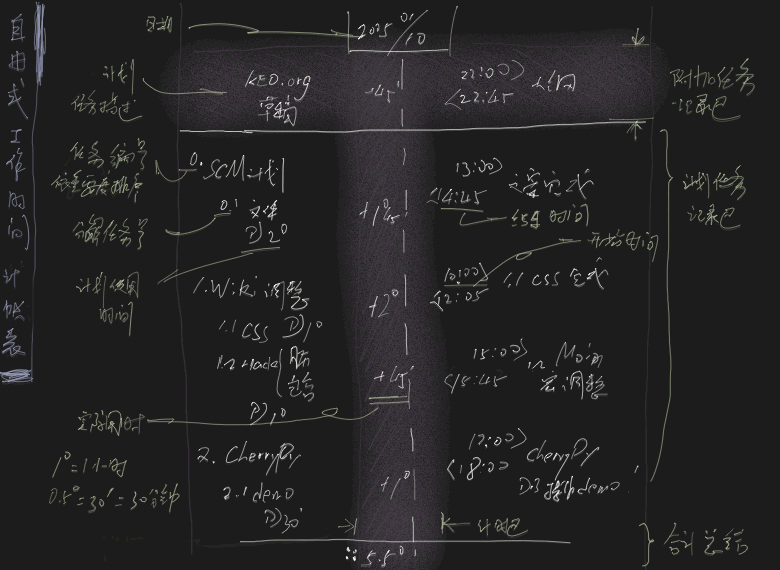 自由式工作时间计帐表
日期
2005 01/10
计划
任务描述
KEO.org
草稿
+45'
22:00>
<22:45
附加任务
记录区
任务编号
依重要度排序
0.SCM计划
0.1 文体
D)2°
+1°45'
13:00>
<14:45
结束时间
计划任务
记录区
分解任务号
计划使用
时间
1.Wiki调整
1.1 CSS D)1°
+2°
10:00>
<12:05
1.1 CSS 完成
开始时间
D)1°
+45'
15:00>
<15:45
1.2 Moin
调整
实际用时
1°=1小时
0.5°=30'=30分钟
2. CherryPy
2.1 demo
D)30'
+1°
17:00>
<18:00
CherryPy
demo
计时区
5.5°
合计总结